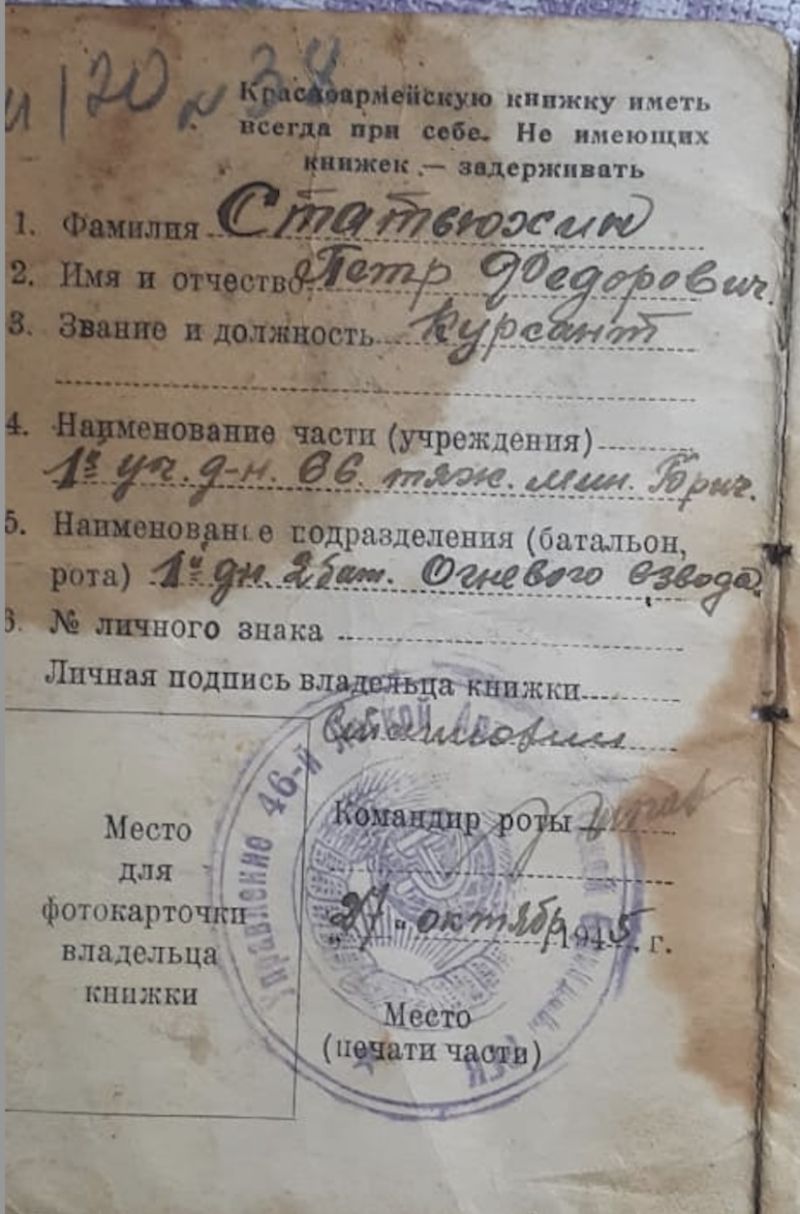 120 н 34
Красноармейскую книжку иметь
всегда при себе. Не имеющих
книжек — задерживать
1. Фамилия Статьюхин
2. Имя и отчество Петр Федорович.
3. Звание и должность Курсант
4. Наименование части (учреждения)
1й уч. д-н. 66 тяж. мин. Бриг.
5. Наименование подразделения (батальон,
рота) 1й дн. 2 бат. Огневого взвода
6. № личного знака
Личная подпись владельца книжки
Командир роты
„27" октябр 1945. г.
Место
(печати части)
Место
для
фотокарточки
владельца
книжки
Управление 46-й